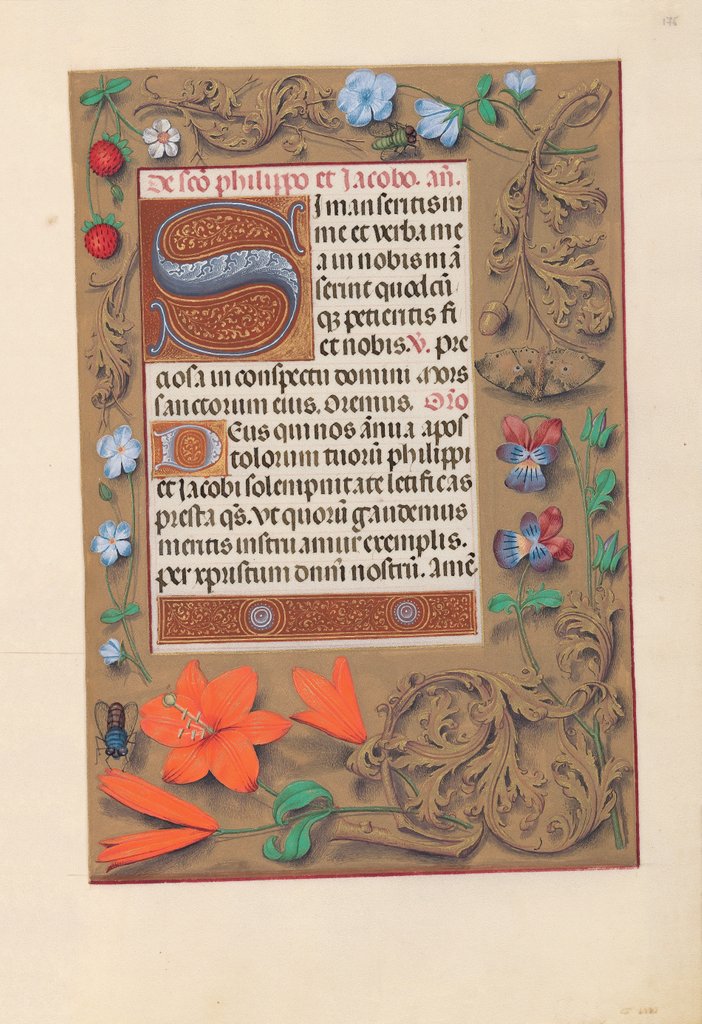 176
De scō philippo et Jacobo. an̄.
Si manseritis in
me et verba me
a in nobis mā
serint quodcū
qȝ petieritis fi
et nobis. V̄. Pre
ciosa in conspectu domini Mors
sanctorum eius. Oremus. Oro̅
Deus qui nos ānua apos
tolorum tuorū philippi
et Jacobi solempnitate letificas
presta q̄s. Vt quorū gaudemus
meritis instruamur exemplis.
per xpristum dnm̄ nostrū. Amē